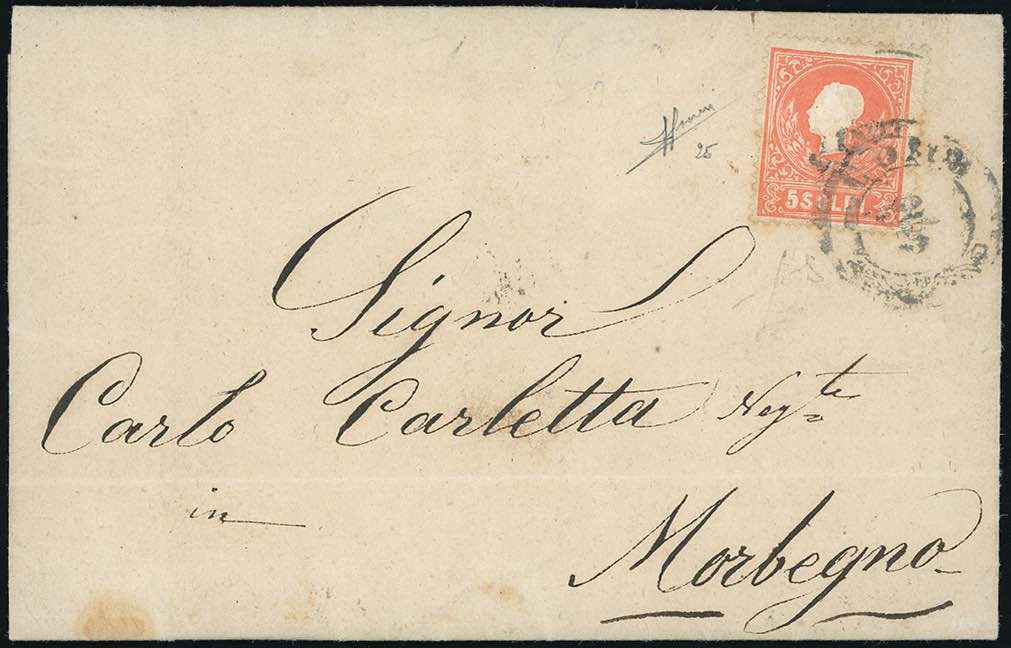 5 SOLDI
25
Signor
Carlo Carletta Neg.te
in
Morbegno